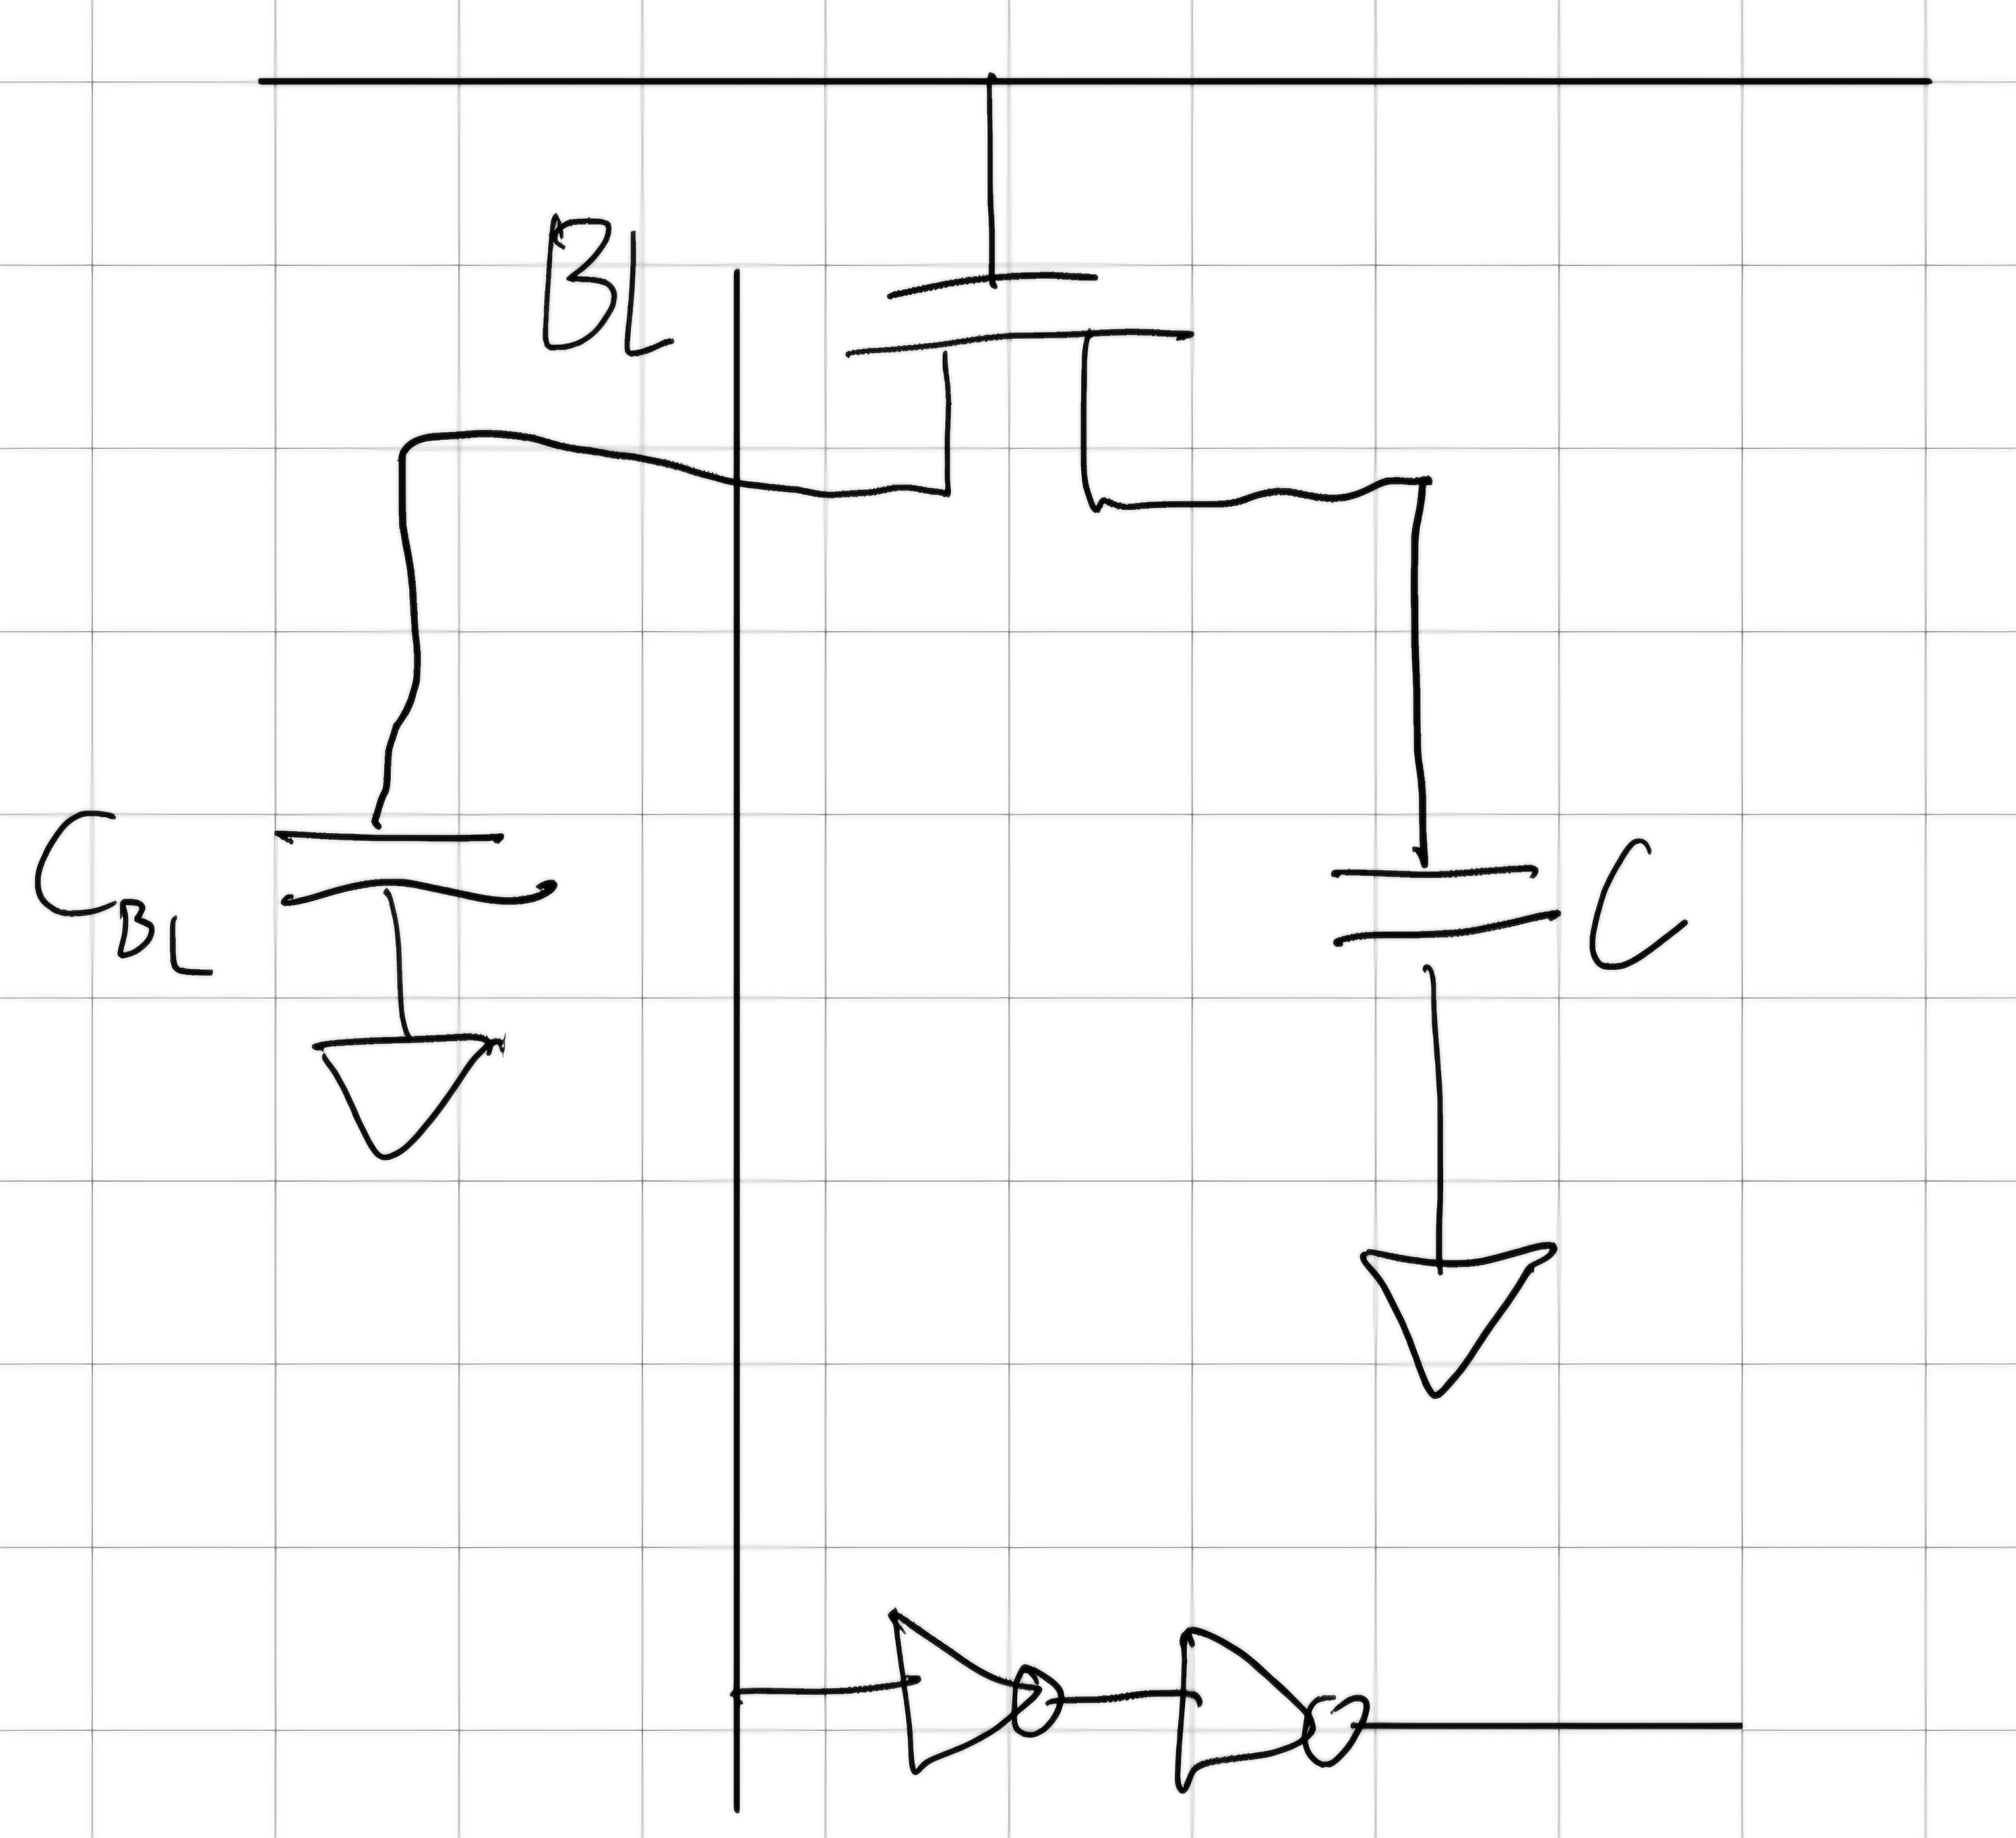 BL
C_BL
C